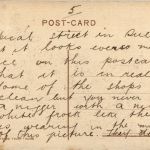 5
POST-CARD
pical street in Du
it looks ever so m
ce on this postca
hat it is in real
ome of the shops
clean, but you never
a nigger with a ni
white frock like th
is wearing in the m
of this picture They